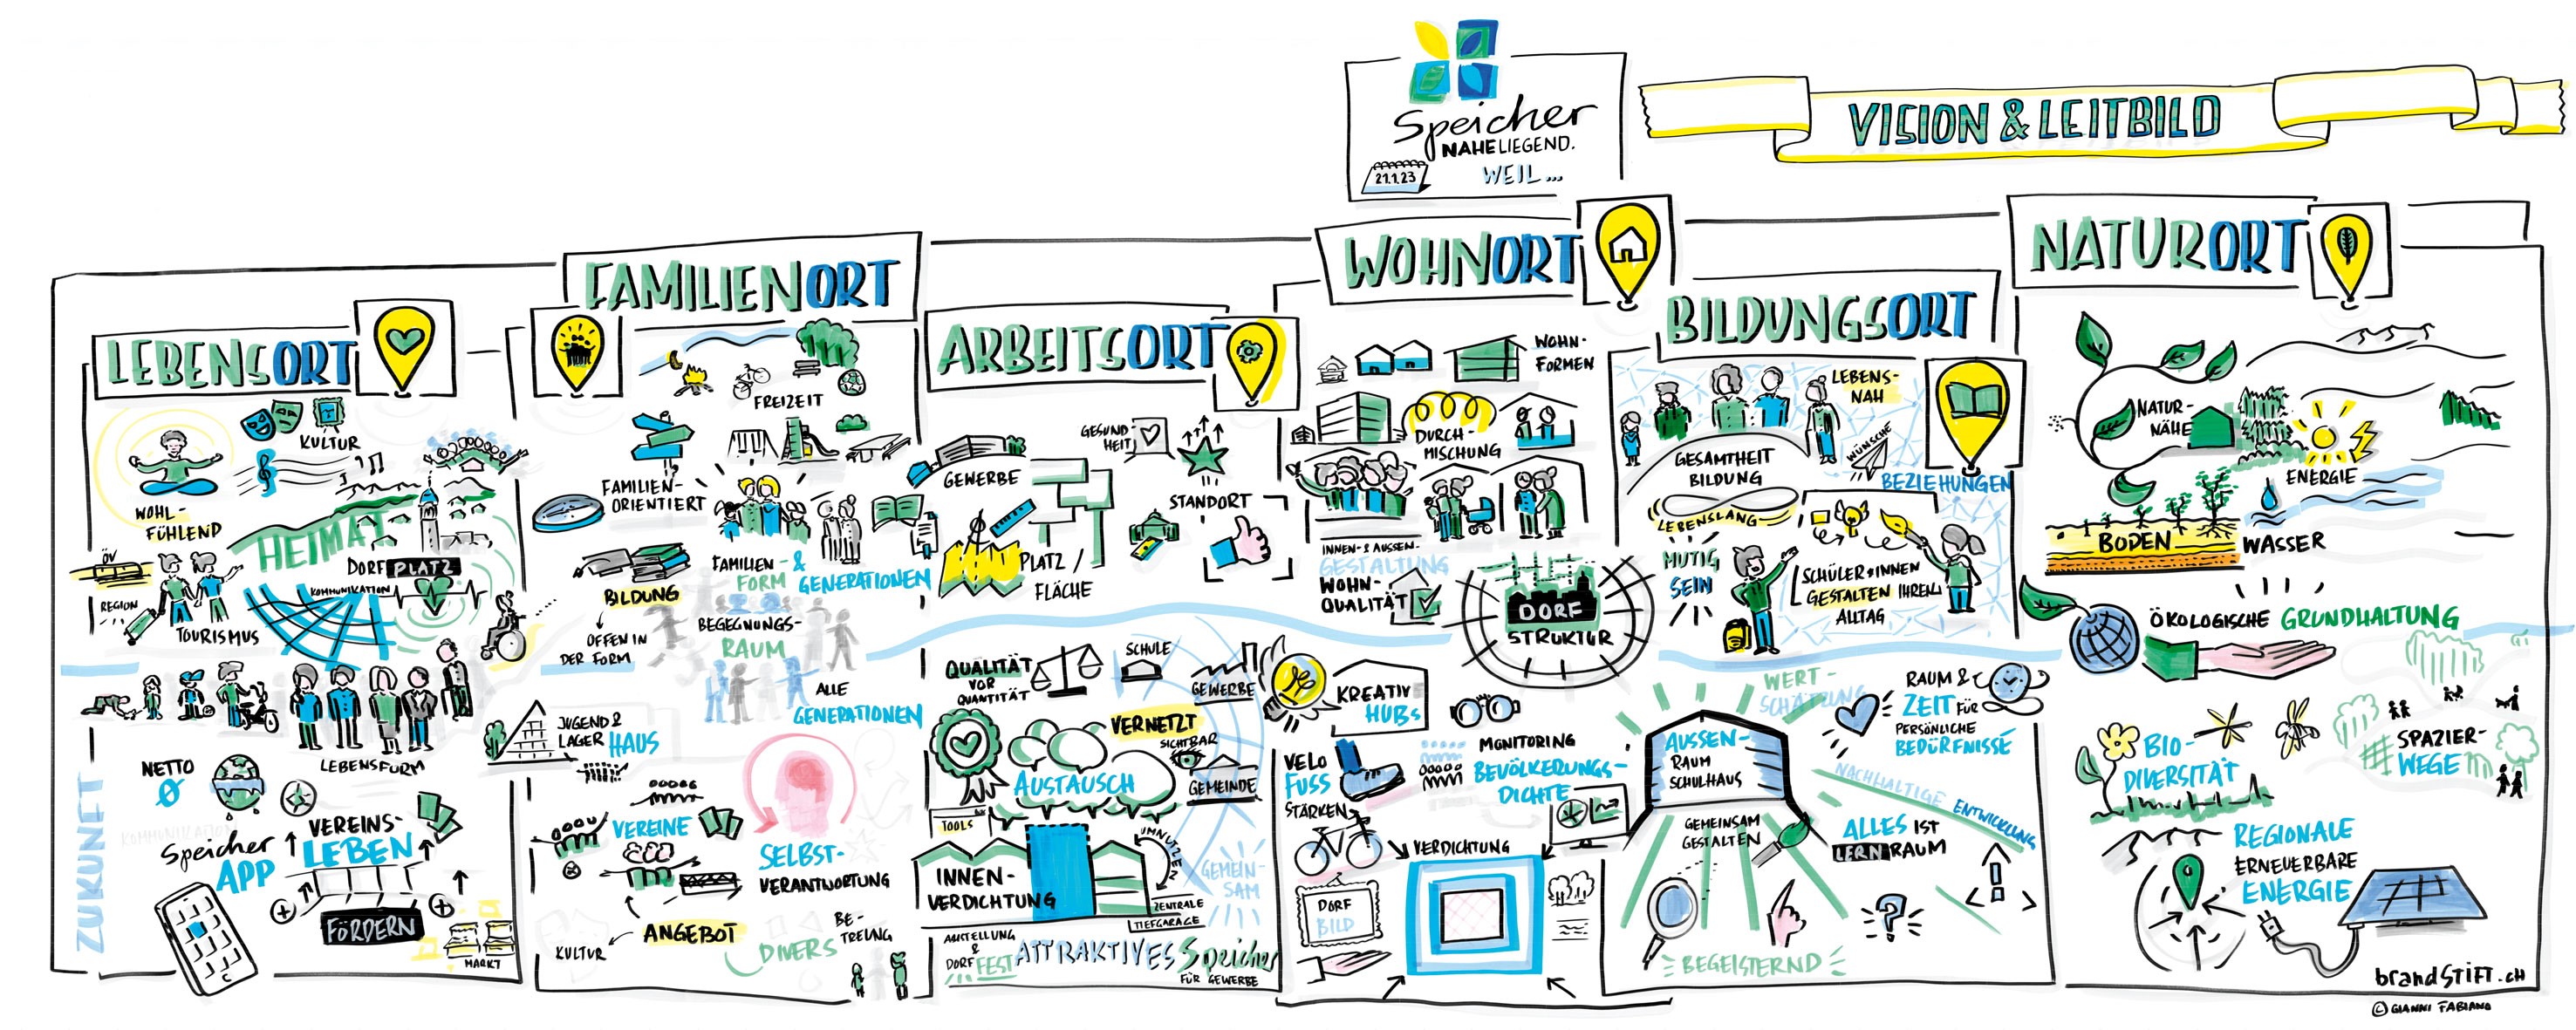 Speicher
NAHELIEGEND.
WEIL...
21.1.23
VISION & LEITBILD
LEBENSORT
KULTUR
WOHL-
FÜHLEND
HEIMAT
DORFPLATZ
KOMMUNIKATION
ÖV
REGION
TOURISMUS
LEBENSFORM
ZUKUNFT
NETTO
0
KOMMUNIKATION
Speicher
APP
VEREINS-
LEBEN
FÖRDERN
MARKT
FAMILIENORT
FREIZEIT
FAMILIEN-
ORIENTIERT
FAMILIEN- &
FORM GENERATIONEN
BILDUNG
OFFEN IN
DER FORM
BEGEGNUNGS-
RAUM
ALLE
GENERATIONEN
JUGEND &
LAGER HAUS
VEREINE
SELBST-
VERANTWORTUNG
ANGEBOT
KULTUR
DIVERS
BE-
TREUNG
ARBEITSORT
GESUND
HEIT
GEWERBE
STANDORT
PLATZ /
FLÄCHE
QUALITÄT
VOR
QUANTITÄT
SCHULE
GEWERBE
VERNETZT
SICHTBAR
AUSTAUSCH
GEMEINDE
TOOLS
UMNUTZEN
INNEN-
VERDICHTUNG
GEMEIN-
SAM
ZENTRALE
TIEFGARAGE
AUSTELLUNG
&
DORF
FEST
ATTRAKTIVES Speicher
FÜR GEWERBE
WOHNORT
WOHN-
FORMEN
DURCH-
MISCHUNG
INNEN- & AUSSEN-
GESTALTUNG
WOHN-
QUALITÄT
DORF
STRUKTUR
KREATIV
HUBs
VELO
FUSS
STÄRKEN
MONITORING
BEVÖLKERUNGS-
DICHTE
VERDICHTUNG
DORF
BILD
BILDUNGSORT
LEBENS-
NAH
WÜNSCHE
GESAMTHEIT
BILDUNG
BEZIEHUNGEN
LEBENSLANG
MUTIG
SEIN
SCHÜLER*INNEN
GESTALTEN IHREN
ALLTAG
WERT-
SCHÄTZUNG
RAUM &
ZEIT FÜR
PERSÖNLICHE
BEDÜRFNISSE
AUSSEN-
RAUM
SCHULHAUS
NACHHALTIGE ENTWICKLUNG
GEMEINSAM
GESTALTEN
ALLES IST
LERNRAUM
BEGEISTERND
NATURORT
NATUR-
NÄHE
ENERGIE
BODEN
WASSER
ÖKOLOGISCHE GRUNDHALTUNG
BIO-
DIVERSITÄT
SPAZIER-
WEGE
REGIONALE
ERNEUERBARE
ENERGIE
brandSTIFT.CH
© GIANNI FABIANO